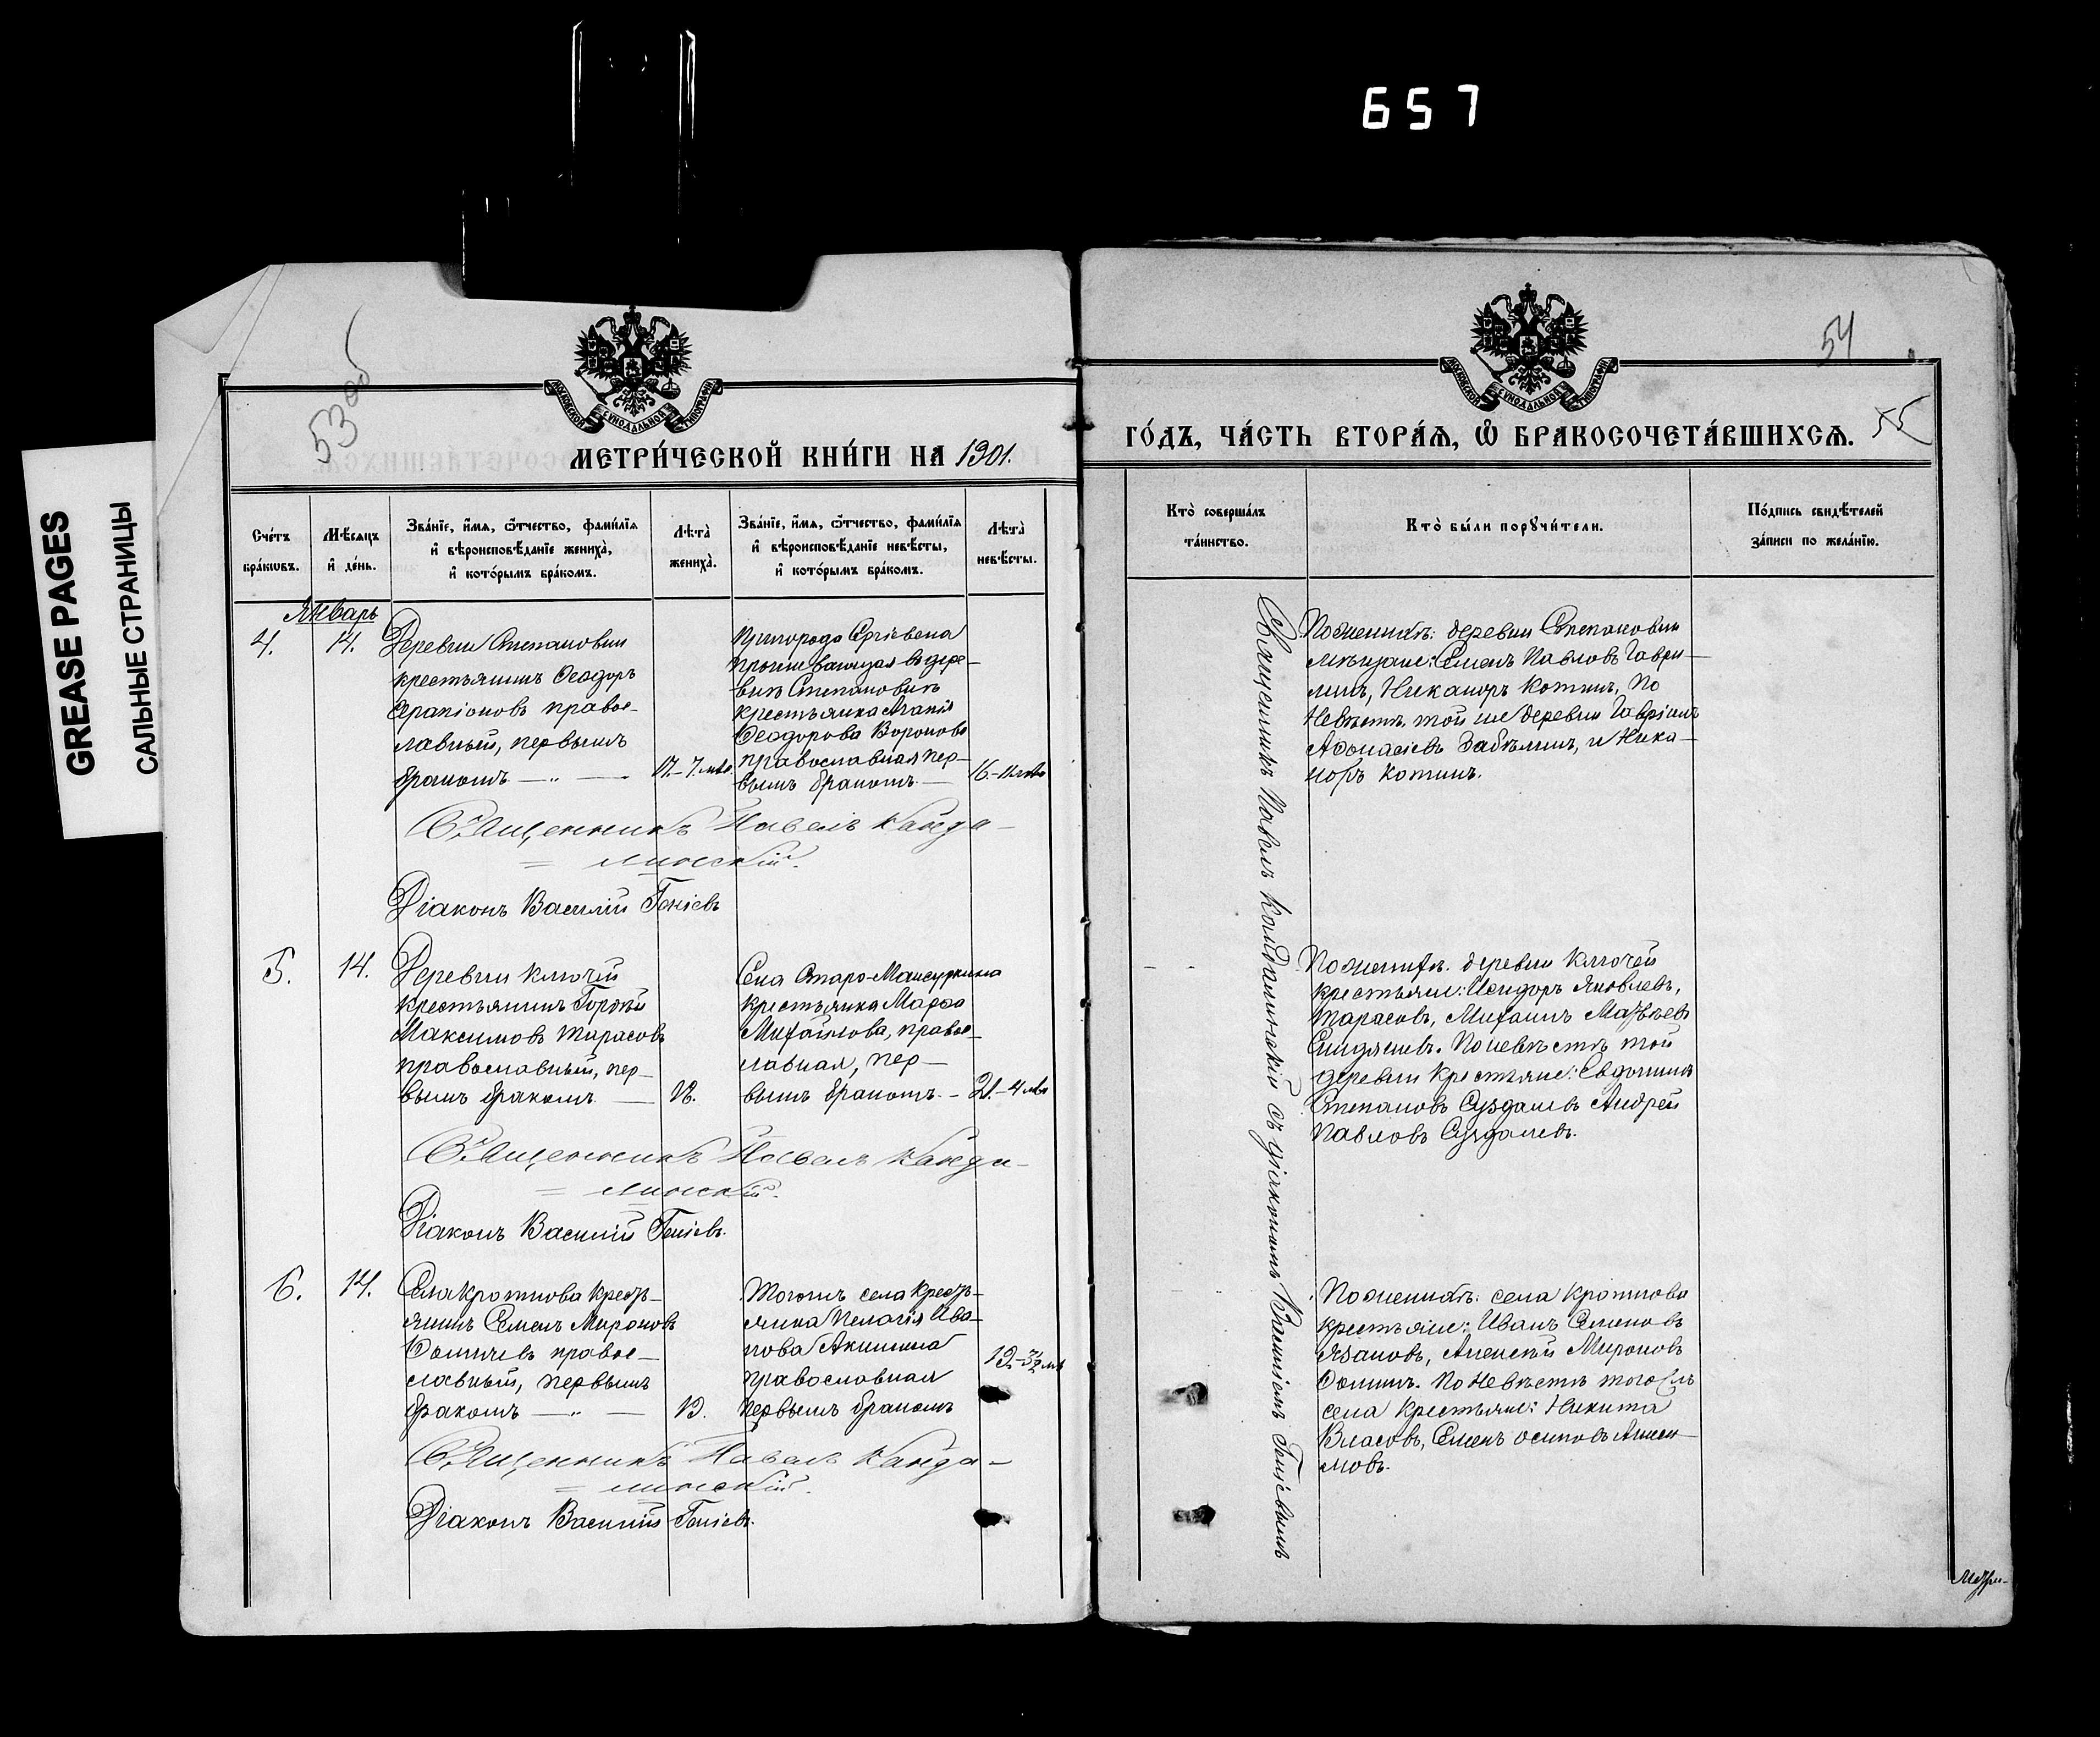 657
GREASE PAGES
САЛЬНЫЕ СТРАНИЦЫ
53 об
МОСКОВСКОЙ СУНОДАЛЬНОЙ ТИПОГРАФІИ
МЕТРИ́ЧЕСКОЙ КНИ́ГИ НА 1901.
Сче́тъ бра́кωвъ.
Мѣ́сяцъ и҆ де́нь.
Зва́ніе, и҆́мя, ѻ҆́тчество, фами́лія
и҆ вѣроисповѣ́даніе жениха̀,
и҆ кото́рымъ бра́комъ.
Лѣта̀
жениха̀.
Зва́ніе, и҆́мя, ѻ҆́тчество, фами́лія
и҆ вѣроисповѣ́даніе невѣ́сты,
и҆ кото́рымъ бра́комъ.
Лѣта̀
невѣ́сты.
Январь
4.
14.
Деревни Степановки
крестьянинъ Ѳеодоръ
Серапіоновъ правос-
лавный, первымъ
бракомъ — „ —
17.-7 мѣс.
Пригорода Сергіевска
проживающая въ дере-
внѣ Степановкѣ
крестьянка Агаѳія
Ѳеодорова Воронова
православная пер-
вымъ бракомъ. —
Священникъ Павелъ Канда-
= линскій.
Діаконъ Василій Геніевъ
5.
14.
Деревни Ключей
крестьянинъ Гордѣй
Максимовъ Тарасовъ
православный, пер-
вымъ бракомъ —
18.
Села Старо-Мансуркина
крестьянка Марѳа
Михайлова, правос-
лавная, пер-
вымъ бракомъ. -
21.-4 мѣс
Священникъ Павелъ Канда-
= линскій.
Діаконъ Василій Геніевъ.
6.
14.
Села Кроткова кресть-
янинъ Семенъ Мироновъ
Ѳомичевъ правос-
славный, первымъ
бракомъ — „ —
19.
Тогожъ села кресть-
янка Пелагія Ива-
нова Акимина
православная
первымъ бракомъ
Священникъ Павелъ Канда-
= линскій.
Діаконъ Василій Геніевъ.
54
55
МОСКОВСКОЙ СУНОДАЛЬНОЙ ТИПОГРАФІИ
ГО́ДЪ, ЧА́СТЬ ВТОРА́Я, Ѡ҆ БРАКОСОЧЕТА́ВШИХСЯ.
Кто̀ соверша́лъ
та́инство.
Кто̀ бы́ли порꙋчи́тели.
По́дпись свидѣ́телей
за́писи по жела́нію.
Священникъ Павелъ Кандалинскій съ діакономъ Василіемъ Геніевымъ
По женихѣ: деревни Степановки
мѣщане: Семенъ Павловъ Гаври-
линъ, Никаноръ Котинъ, по
невѣстѣ той же деревни Гавріилъ
Аѳонасіевъ Забѣлинъ, и Ника-
норъ Котинъ.
По женихѣ. деревни Ключей
крестьяне: Исидоръ Яковлевъ,
Тарасовъ, Михаилъ Матвѣевъ
По невѣстѣ той
деревни крестьяне: Евдокимъ
Степановъ Суздалевъ Андрей
Павловъ Суздалевъ.
По женихѣ: села Кроткова
крестьяне: Иванъ Семеновъ
Алексѣй Мироновъ
Ѳоминъ. По невѣстѣ того жъ
села крестьяне: Никита
Власовъ, Семенъ Осиповъ
Метри-